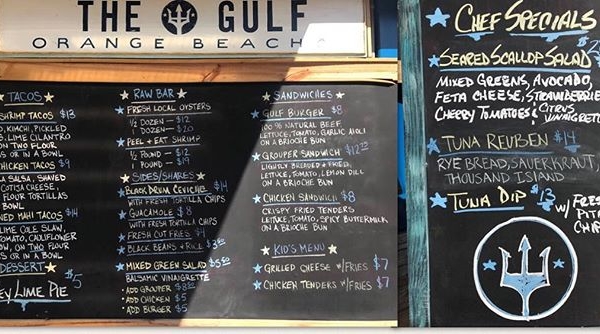 THE GULF
ORANGE BEACH
TACOS
SHRIMP TACOS $13
KIMCHI, PICKLED
LIME CILANTRO
ON TWO FLOUR
OR IN A BOWL
CHICKEN TACOS $9
SALSA, SHAVED
COTISA CHEESE,
FLOUR TORTILLAS
BOWL
MAHI TACOS $14
LIME COLE SLAW,
TOMATO, CAULIFLOWER
ON TWO FLOUR
OR IN A BOWL
DESSERT
KEY LIME PIE $5
RAW BAR
FRESH LOCAL OYSTERS
1/2 DOZEN - $12
1 DOZEN - $20
PEEL + EAT SHRIMP
1/2 POUND - $12
1 POUND - $19
SIDES/SHARES
BLACK DRUM CEVICHE $14
WITH FRESH TORTILLA CHIPS
GUACAMOLE $8
WITH FRESH TORTILLA CHIPS
FRESH CUT FRIES $4
BLACK BEANS + RICE
MIXED GREEN SALAD
BALSAMIC VINAIGRETTE
• ADD GROUPER
• ADD CHICKEN $5
• ADD BURGER $5
SANDWICHES
GULF BURGER $8
100% NATURAL BEEF
LETTUCE, TOMATO, GARLIC AIOLI
ON A BRIOCHE BUN
GROUPER SANDWICH
LIGHTLY BREADED + FRIED
LETTUCE, TOMATO, LEMON DILL
ON A BRIOCHE BUN
CHICKEN SANDWICH $8
CRISPY FRIED TENDERS
LETTUCE, TOMATO, SPICY BUTTERMILK
ON A BRIOCHE BUN
KID'S MENU
GRILLED CHEESE W/FRIES $7
CHICKEN TENDERS W/FRIES $7
CHEF SPECIALS
SEARED SCALLOP SALAD
MIXED GREENS, AVOCADO,
FETA CHEESE, STRAWBERRIE
CHERRY TOMATOES CITRUS
VINAIGRETTE
TUNA REUBEN $14
RYE BREAD, SAUERKRAUT,
THOUSAND ISLAND
TUNA DIP $13
W/ FRES
PITA
CHIP